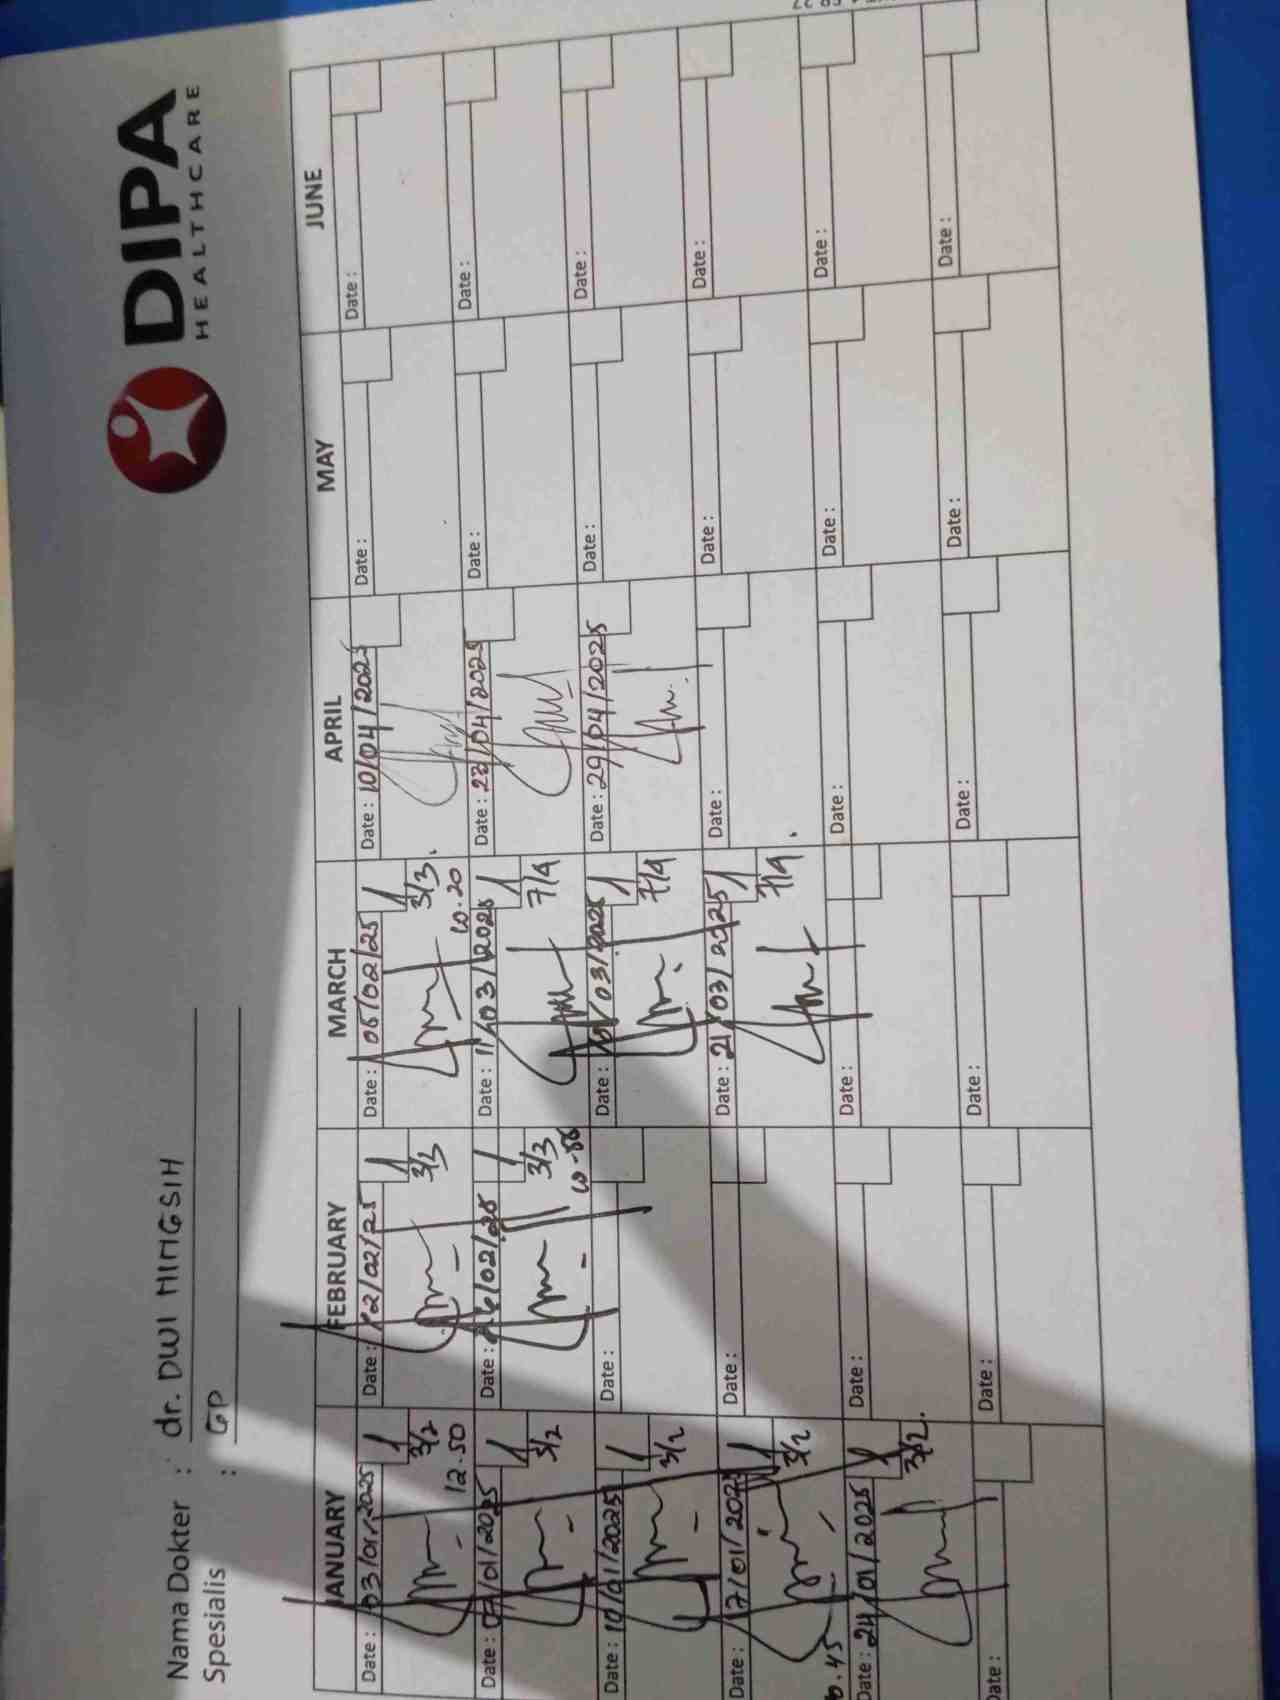 DIPA
HEALTHCARE
Nama Dokter : dr. DWI HIHGSIH
Spesialis : GP
JANUARY FEBRUARY MARCH APRIL MAY JUNE
Date : 03/01/2025 1 Date : 12/02/25 1 Date : 06/02/25 1 Date : 10/04/2025 Date : Date :
3/2 3/3 3/3.
12.50 10.20
Date : 07/01/2025 1 Date : 26/02/25 1 Date : 11/03/2025 1 Date : 23/04/2025 Date : Date :
5/2 3/3 7/4
Date : 10/01/2025 1 Date : Date : /03/2025 1 Date : 29/04/2025 Date : Date :
3/2 7/4
Date : 17/01/2025 1 Date : Date : 21/03/2025 1 Date : Date : Date :
3/2 7/4.
Date : 24/01/2025 Date : Date : Date : Date : Date :
3/2.
Date : Date : Date : Date : Date : Date :